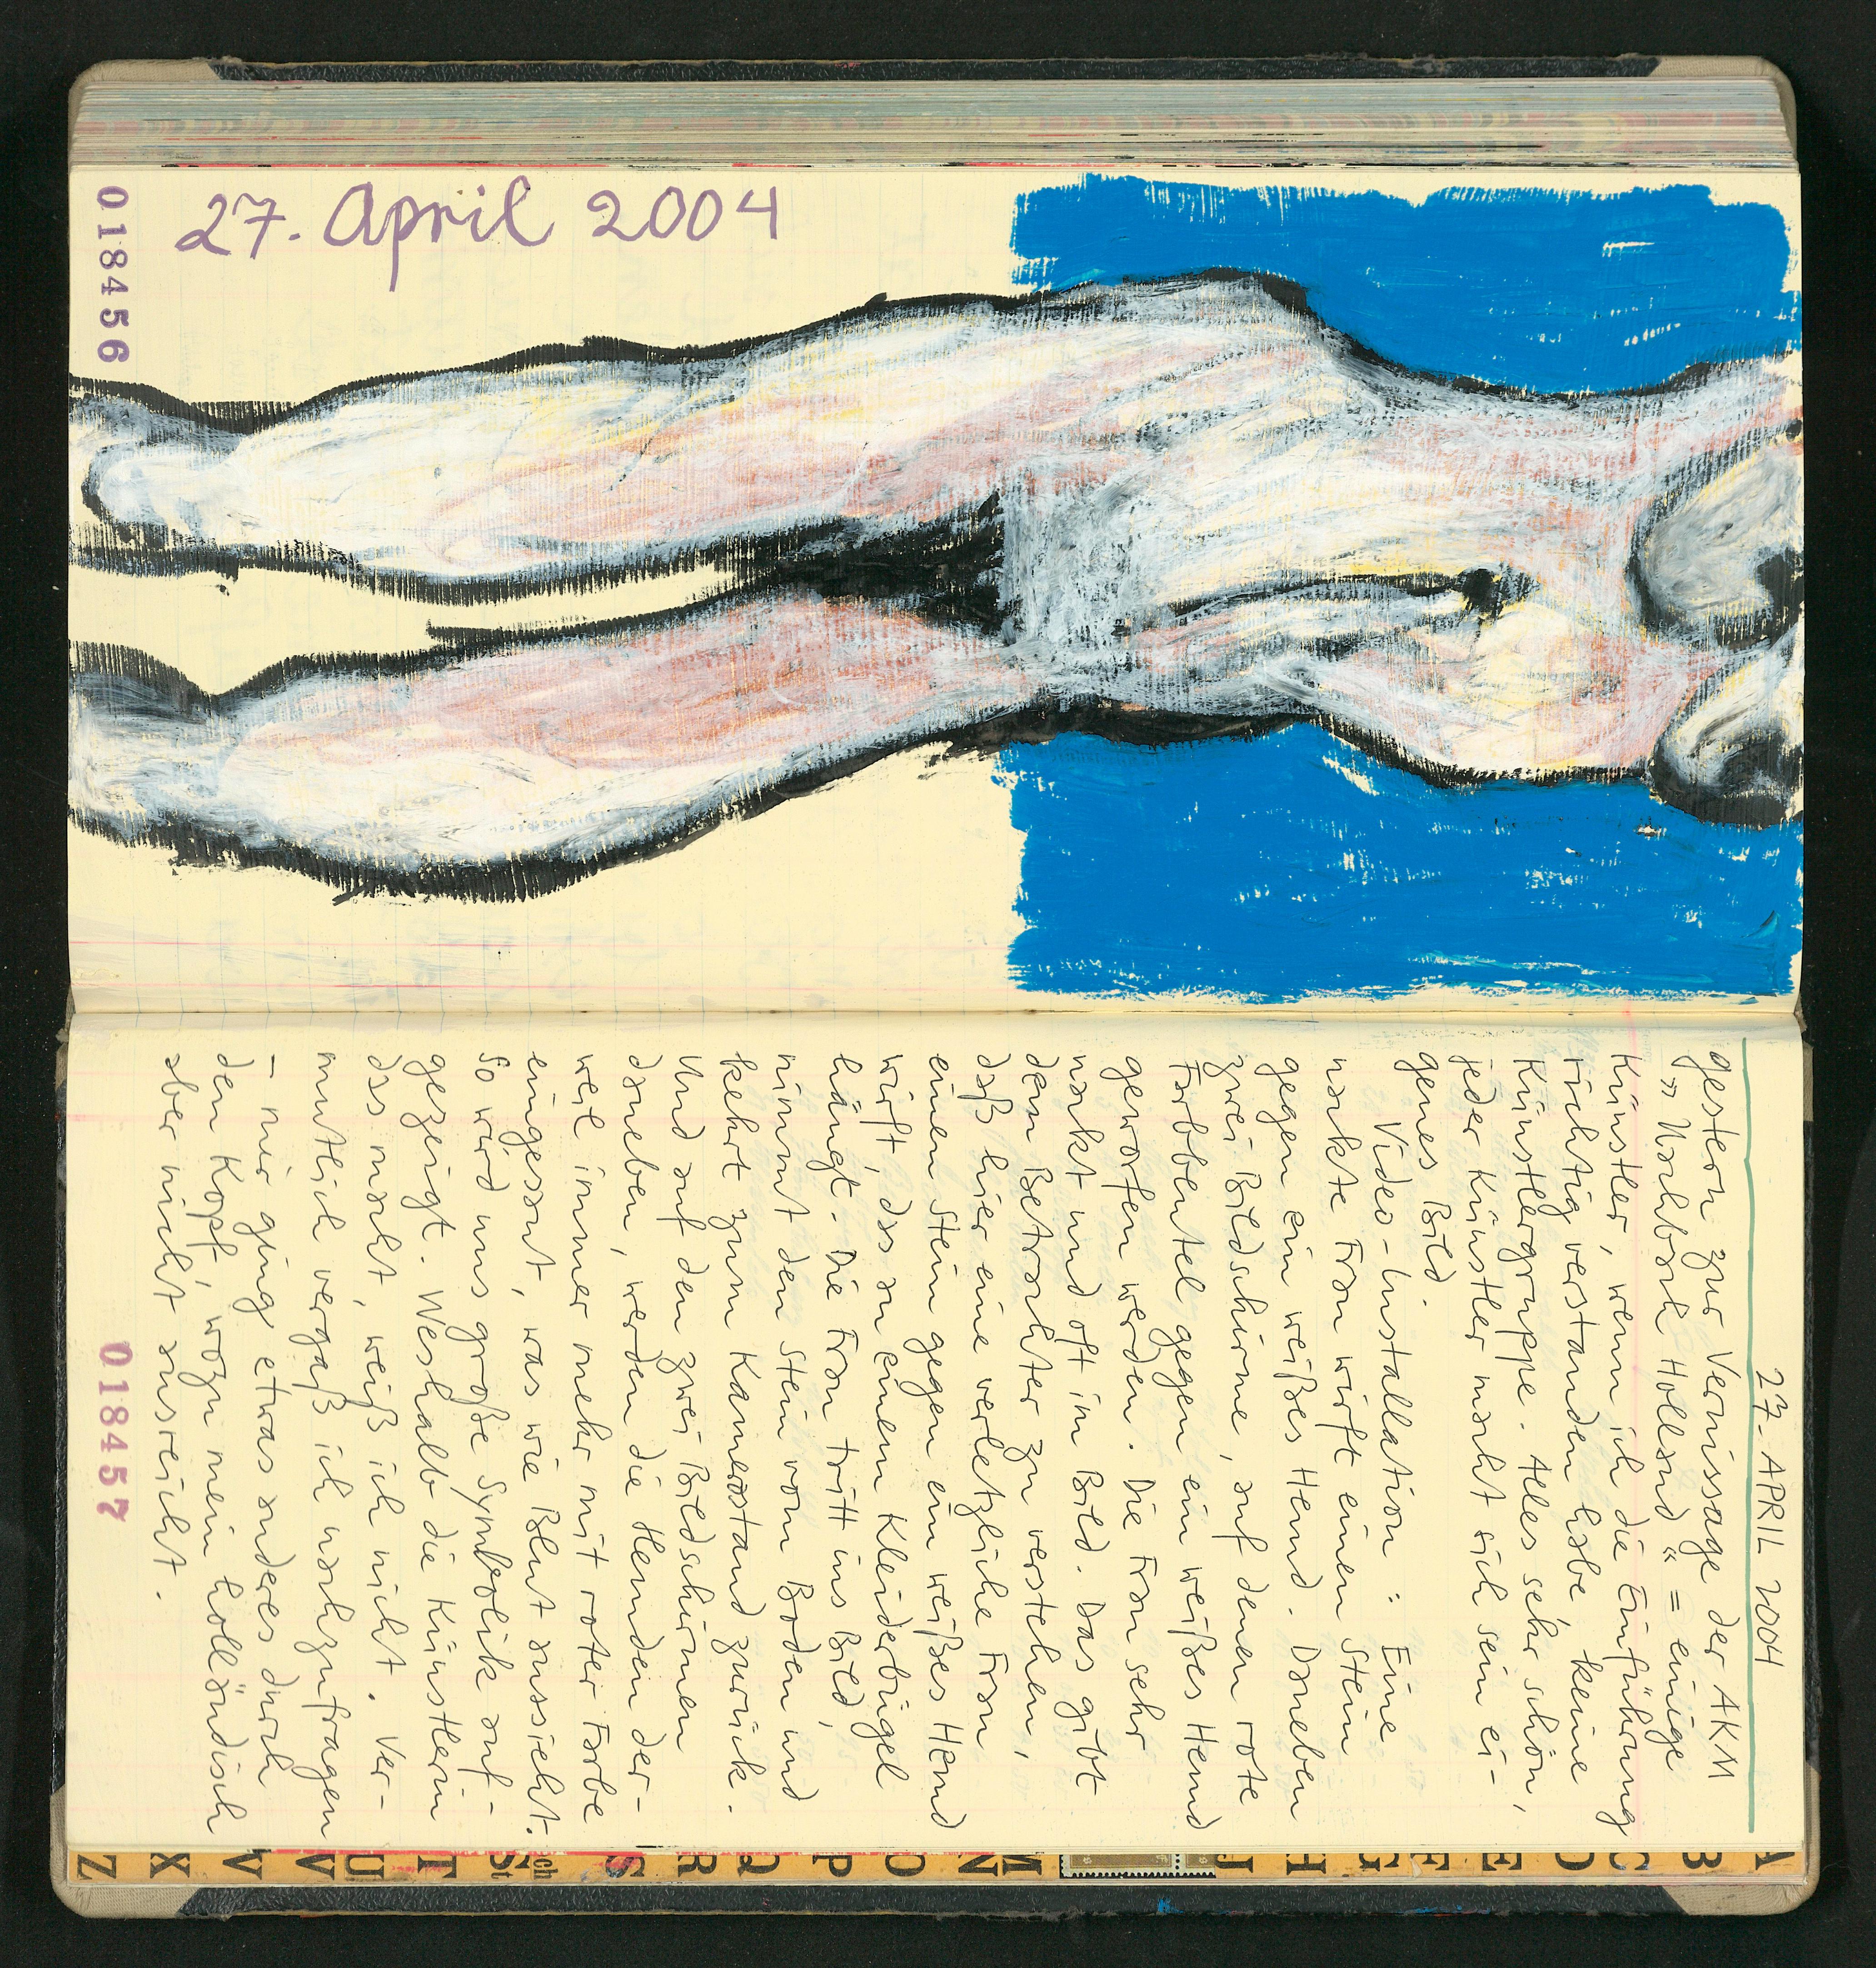 27. April 2004
018456
27. APRIL 2004
gestern zur Vernissage der AKM
»Nachbar Holland« = einige
Künstler, wenn ich die Einführung
richtig verstanden habe, keine
Künstlergruppe. Alles sehr schön,
jeder Künstler macht sich sein ei-
genes Bild.
Video-Installation: Eine
nackte Frau wirft einen Stein
gegen ein weißes Hemd. Daneben
zwei Bildschirme, auf denen rote
Farbbeutel gegen ein weißes Hemd
geworfen werden. Die Frau sehr
nackt und oft im Bild. Das gibt
dem Betrachter zu verstehen,
daß hier eine verletzliche Frau
einen Stein gegen ein weißes Hemd
wirft, das an einem Kleiderbügel
hängt. Die Frau tritt ins Bild,
nimmt den Stein vom Boden und
kehrt zum Kamerastand zurück.
Und auf den zwei Bildschirmen
daneben, werden die Hemden der-
weil immer mehr mit roter Farbe
eingesaut, was wie Blut aussieht.
So wird uns große Symbolik auf-
gezeigt. Weshalb die Künstlerin
das macht, weiß ich nicht. Ver-
mutlich vergaß ich nachzufragen
– mir ging etwas anderes durch
den Kopf, wozu mein holländisch
aber nicht ausreicht.
018457
A
B
C
D
E
F
G
H
J
M
N
O
P
Q
R
S
Sch
St
T
U
V
V
X
Z